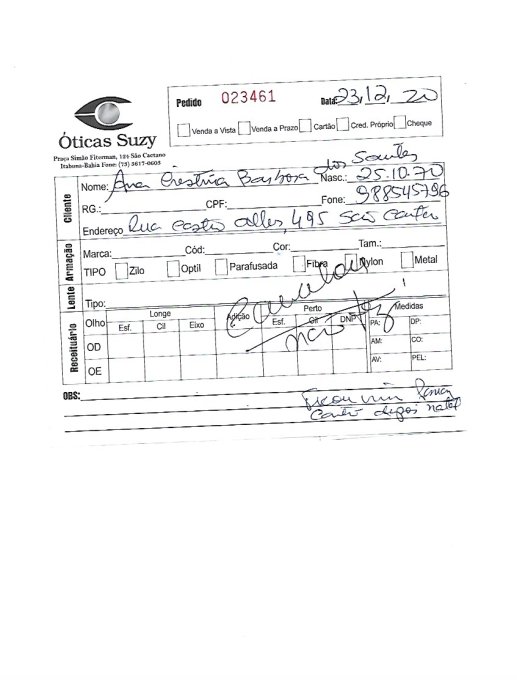 Pedido 023461 Data: 23,12,20
Venda a Vista Venda a Prazo Cartão Cred. Próprio Cheque
Óticas Suzy
Praça Simão Fiterman, 124 São Caetano
Itabuna-Bahia Fone: (73) 3617-0605
Cliente
Nome: Ana Cristina Barbosa dos Santos Nasc.: 25.10.70
RG.: CPF: Fone: 988545796
Endereço Rua Castro Alves, 495 São
Armação
Marca: Cód: Cor: Tam.:
TIPO Zilo Optil Parafusada Fibra Nylon Metal
Lente
Tipo:
Cancelou
não fez
Receituário
Olho Longe Adição Perto Medidas
Esf. Cil Eixo Esf. Cil DNP PA: DP:
OD AM: CO:
OE AV: PEL:
OBS:
Ficou
depois natal